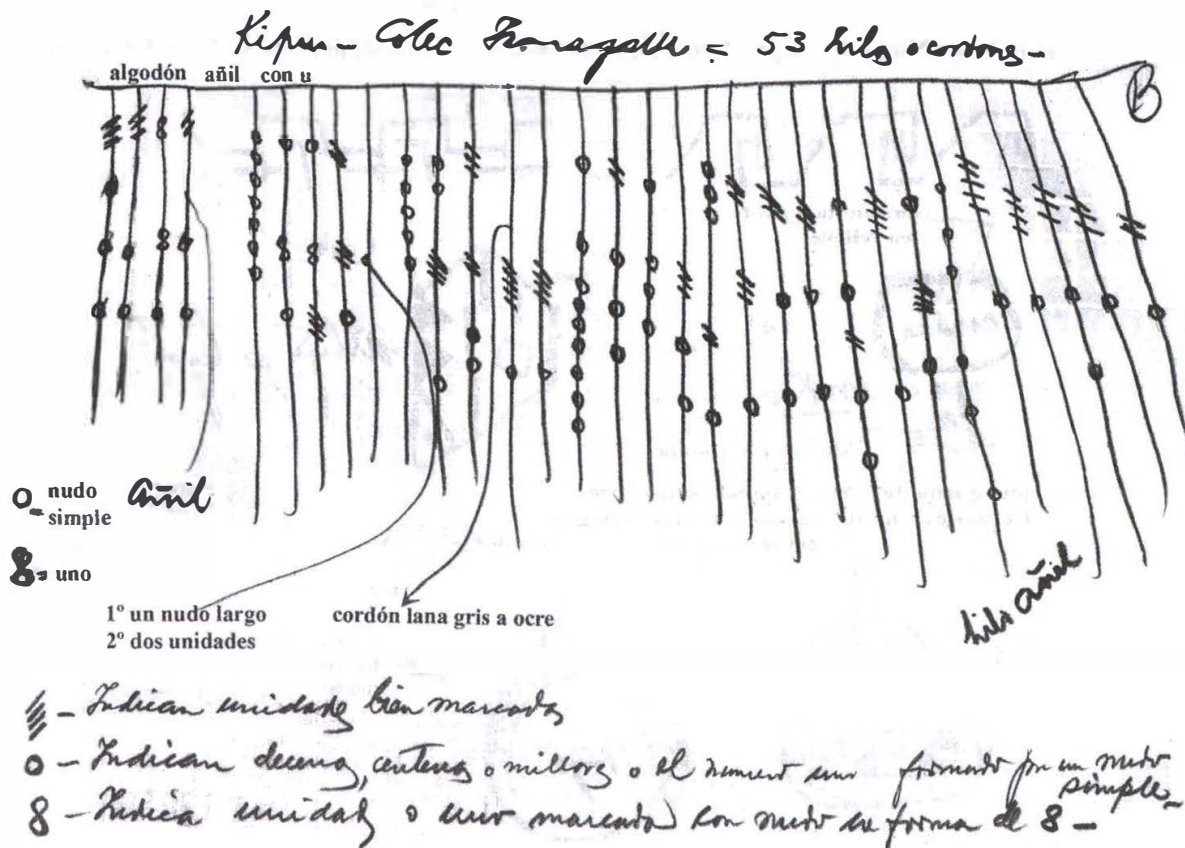 Kipu - Colec = 53 hilos o cordones -
algodón añil con u
B
O = nudo simple
añil
8 = uno
1º un nudo largo
2º dos unidades
cordón lana gris a ocre
hilo añil
- Indican unidades bien marcadas
O - Indican decenas, centenas o millares o el numero uno formado por un nudo simple -
8 - Indica unidad o uno marcado con nudo en forma de 8 -